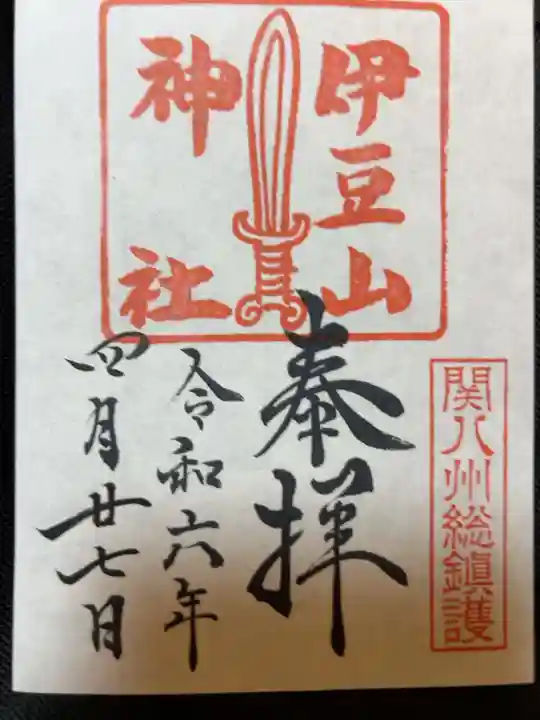 伊豆山
神社
関八州総鎮護
奉拝
令和六年
四月廿七日